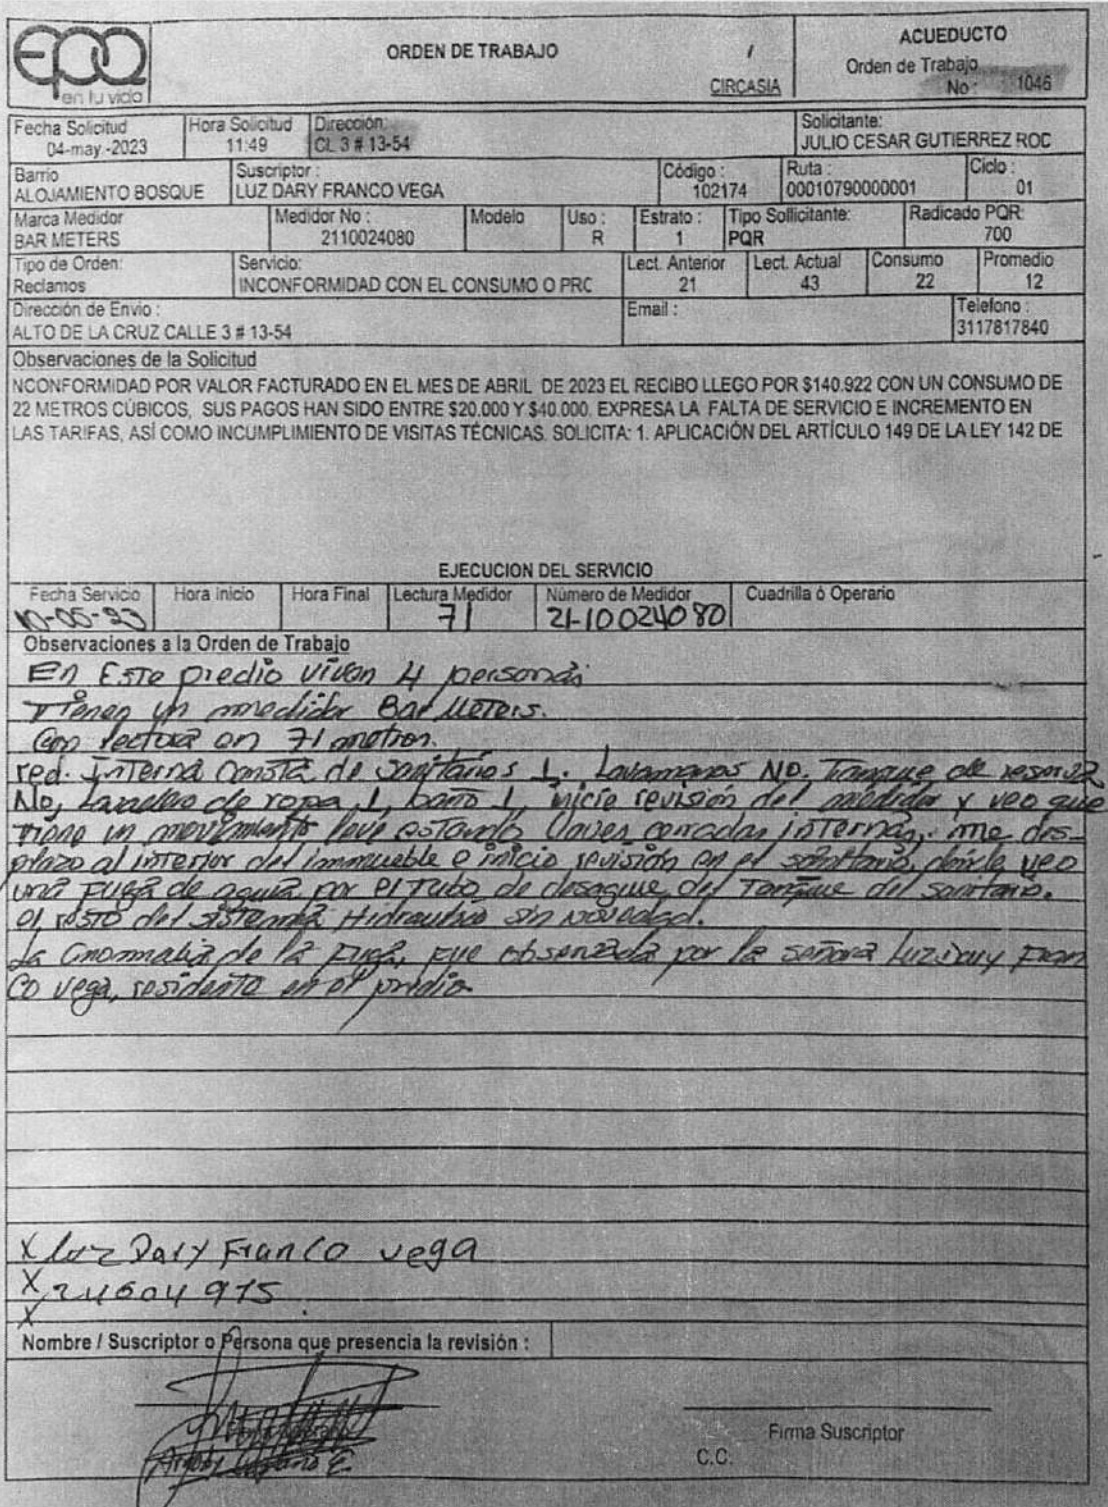 epq
en tu vida
ORDEN DE TRABAJO
/
CIRCASIA
ACUEDUCTO
Orden de Trabajo
No : 1046
Fecha Solicitud
04-may.-2023
Hora Solicitud
11:49
Dirección:
CL 3 # 13-54
Solicitante:
JULIO CESAR GUTIERREZ ROC
Barrio
ALOJAMIENTO BOSQUE
Suscriptor :
LUZ DARY FRANCO VEGA
Código :
102174
Ruta :
00010790000001
Ciclo :
01
Marca Medidor
BAR METERS
Medidor No :
2110024080
Modelo
Uso :
R
Estrato :
1
Tipo Sollicitante:
PQR
Radicado PQR:
700
Tipo de Orden:
Reclamos
Servicio:
INCONFORMIDAD CON EL CONSUMO O PRC
Lect. Anterior
21
Lect. Actual
43
Consumo
22
Promedio
12
Dirección de Envio :
ALTO DE LA CRUZ CALLE 3 # 13-54
Email :
Telefono :
3117817840
Observaciones de la Solicitud
NCONFORMIDAD POR VALOR FACTURADO EN EL MES DE ABRIL DE 2023 EL RECIBO LLEGO POR $140.922 CON UN CONSUMO DE
22 METROS CÚBICOS, SUS PAGOS HAN SIDO ENTRE $20.000 Y $40.000. EXPRESA LA FALTA DE SERVICIO E INCREMENTO EN
LAS TARIFAS, ASÍ COMO INCUMPLIMIENTO DE VISITAS TÉCNICAS. SOLICITA: 1. APLICACIÓN DEL ARTÍCULO 149 DE LA LEY 142 DE
EJECUCION DEL SERVICIO
Fecha Servicio
10-05-23
Hora inicio
Hora Final
Lectura Medidor
71
Número de Medidor
21-10024080
Cuadrilla ó Operario
Observaciones a la Orden de Trabajo
En Este predio viven 4 personas
Tienen un medidor Bar Meters.
Con lectura en 71 metros.
red. Interna Consta de Sanitarios 1. Lavamanos NO. Tanque de reserva
No, Lavadero de ropa 1, baño 1, inicie revisión del medidor y veo que
tiene un movimiento leve estando llaves cerradas internas, me des-
plazo al interior del inmueble e inicio revisión en el sanitario, donde veo
una fuga de agua por el tubo de desague del Tanque del sanitario.
el resto del sistema Hidraulico sin novedad.
La Anomalia de la fuga, fue observada por la señora Luz Dary Fran
co vega, residente en el predio
X Luz Dary Franco vega
X 24604975
X
Nombre / Suscriptor o Persona que presencia la revisión :
Firma Suscriptor
C.C.